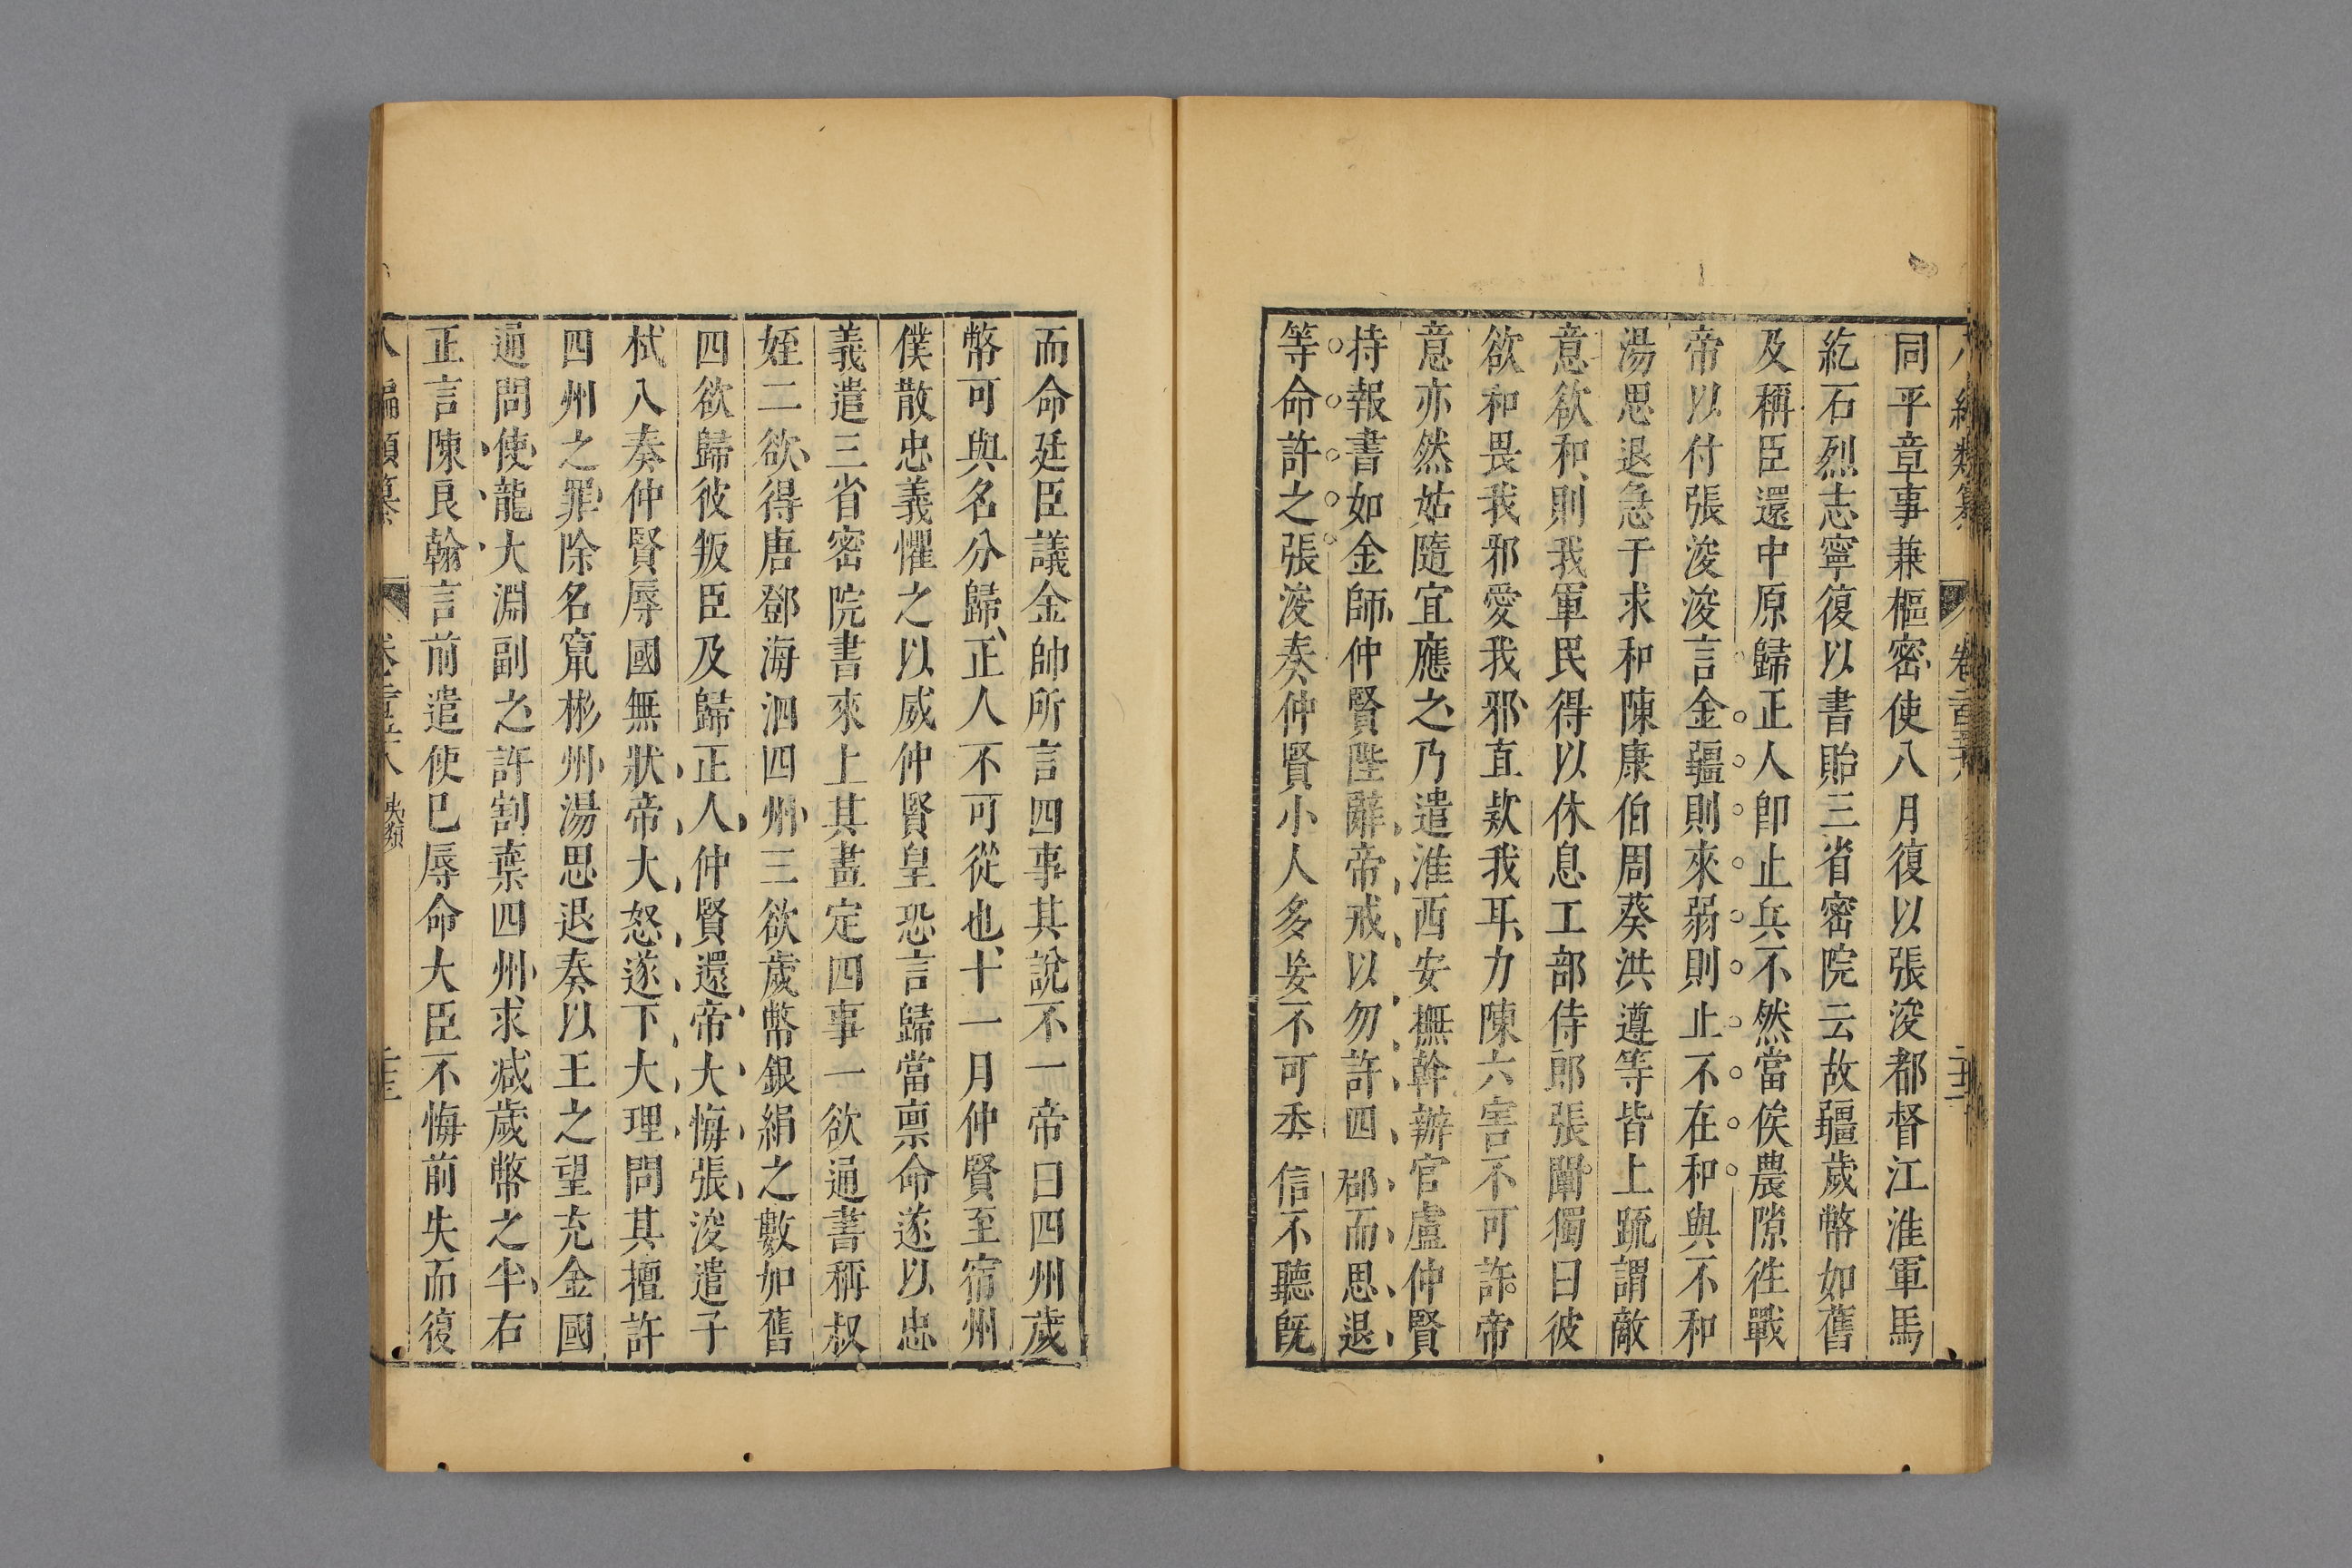 同平章事兼樞密使八月復以張浚都督江淮軍馬
紇石烈志寧復以書貽三省密院云故疆歲幣如舊
及稱臣還中原歸正人卽止兵不然當俟農隙徃戰
帝以付張浚浚言金疆則來弱則止不在和與不和
湯思退急于求和陳康伯周葵洪遵等皆上疏謂敵
意欲和則我軍民得以休息工部侍郎張闡獨曰彼
欲和畏我邪愛我邪直欵我耳力陳六害不可許帝
意亦然姑隨宜應之乃遣淮西安撫幹辦官盧仲賢
持報書如金師仲賢陛辭帝戒以勿許四郡而思退
等命許之張浚奏仲賢小人多妄不可委信不聽旣
而命廷臣議金帥所言四事其說不一帝曰四州歲
幣可與名分歸正人不可從也十一月仲賢至宿州
僕散忠義懼之以威仲賢皇恐言歸當禀命遂以忠
義遣三省密院書來上其畫定四事一欲通書稱叔
姪二欲得唐鄧海泗四州三欲歲幣銀絹之數如舊
四欲歸彼叛臣及歸正人仲賢還帝大悔張浚遣子
栻入奏仲賢辱國無狀帝大怒遂下大理問其擅許
四州之罪除名竄彬州湯思退奏以王之望充金國
通問使龍大淵副之許割棄四州求減歲幣之半右
正言陳良翰言前遣使已辱命大臣不悔前失而復